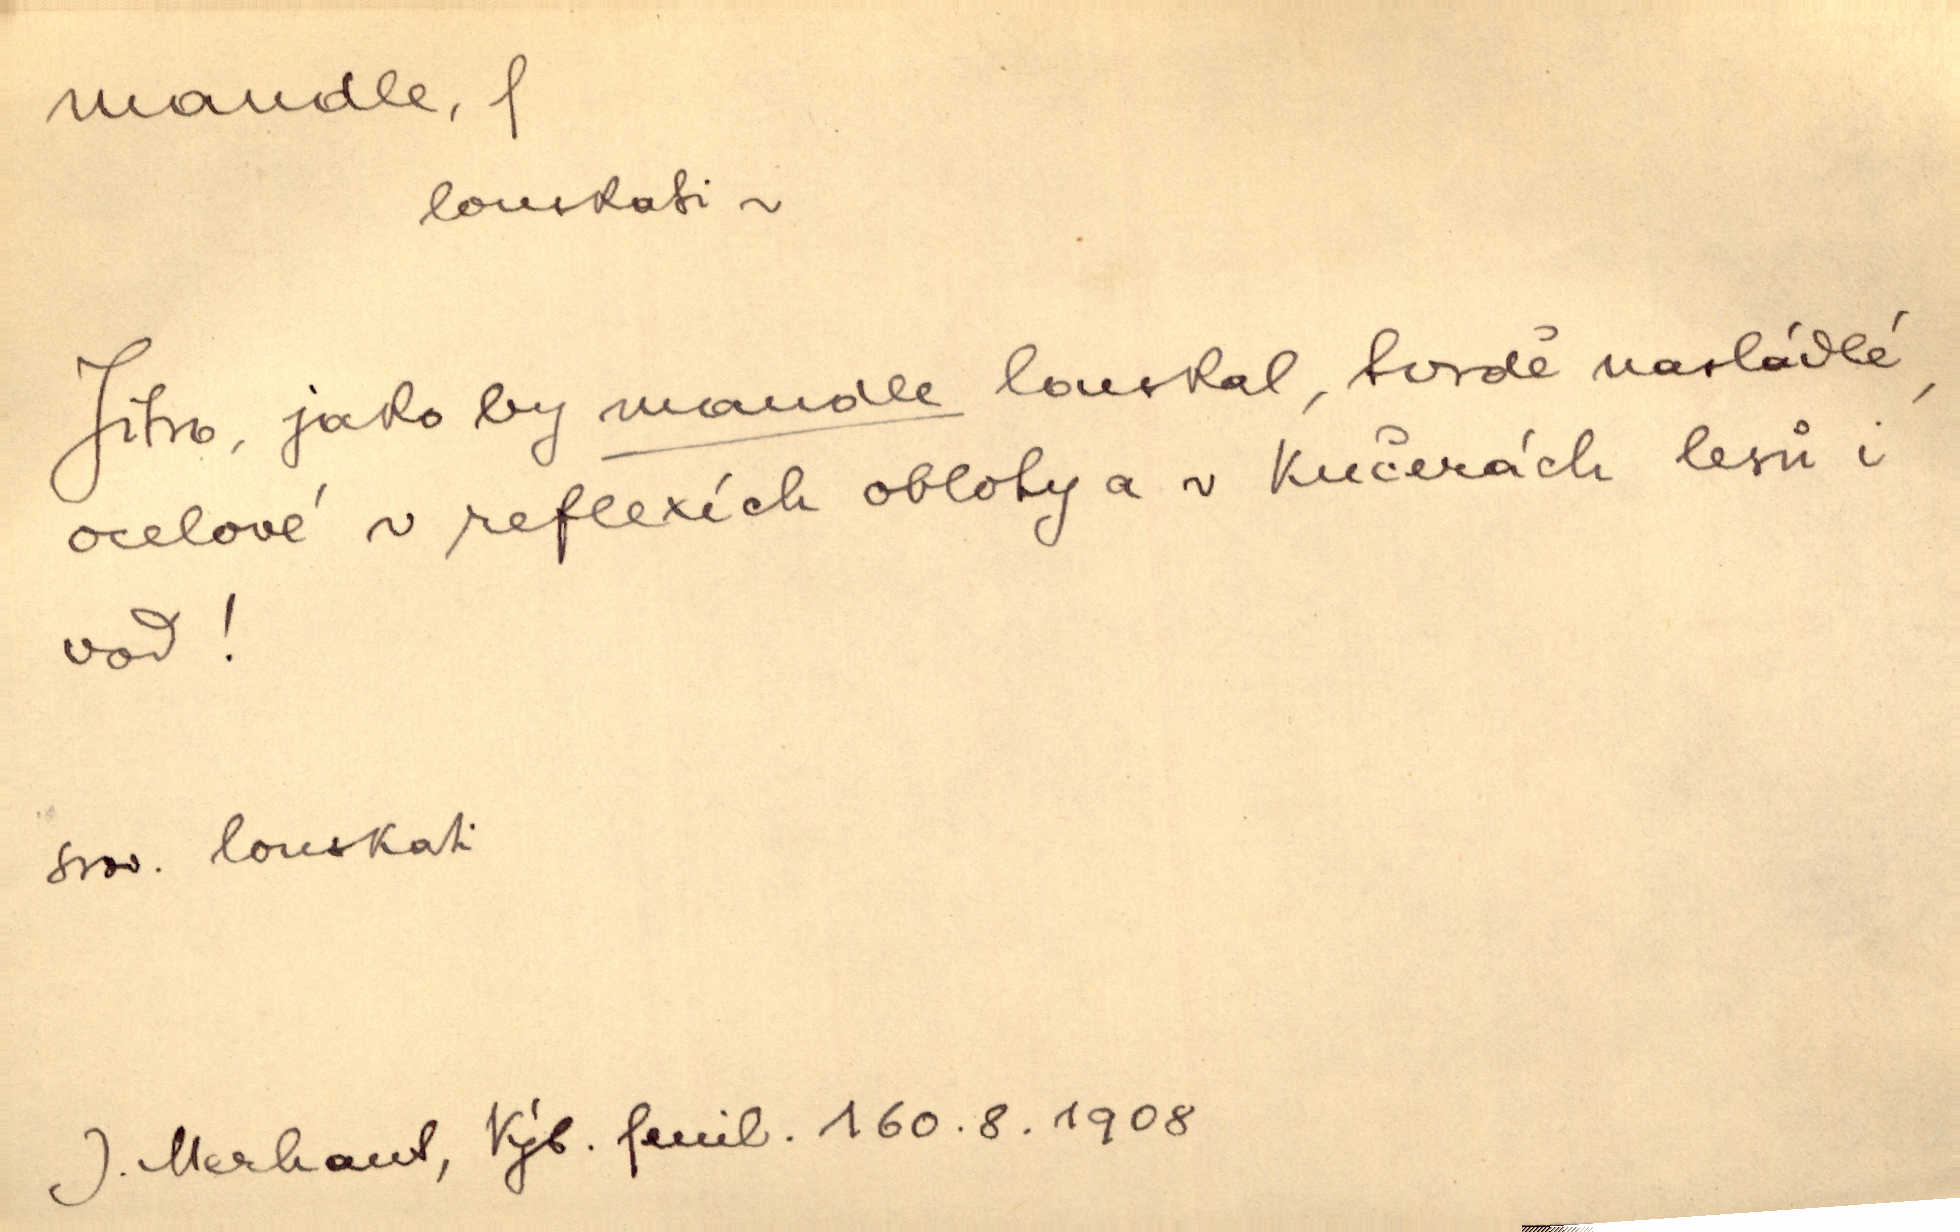 mandle, f
louskati ~
Jitro, jako by mandle louskal, tvrdě nasládlé,
ocelové v reflexích oblohy a v kučerách lesů i
vod!
srov. louskati
J. Merhaut, Výb. feuil. 160.8.1908